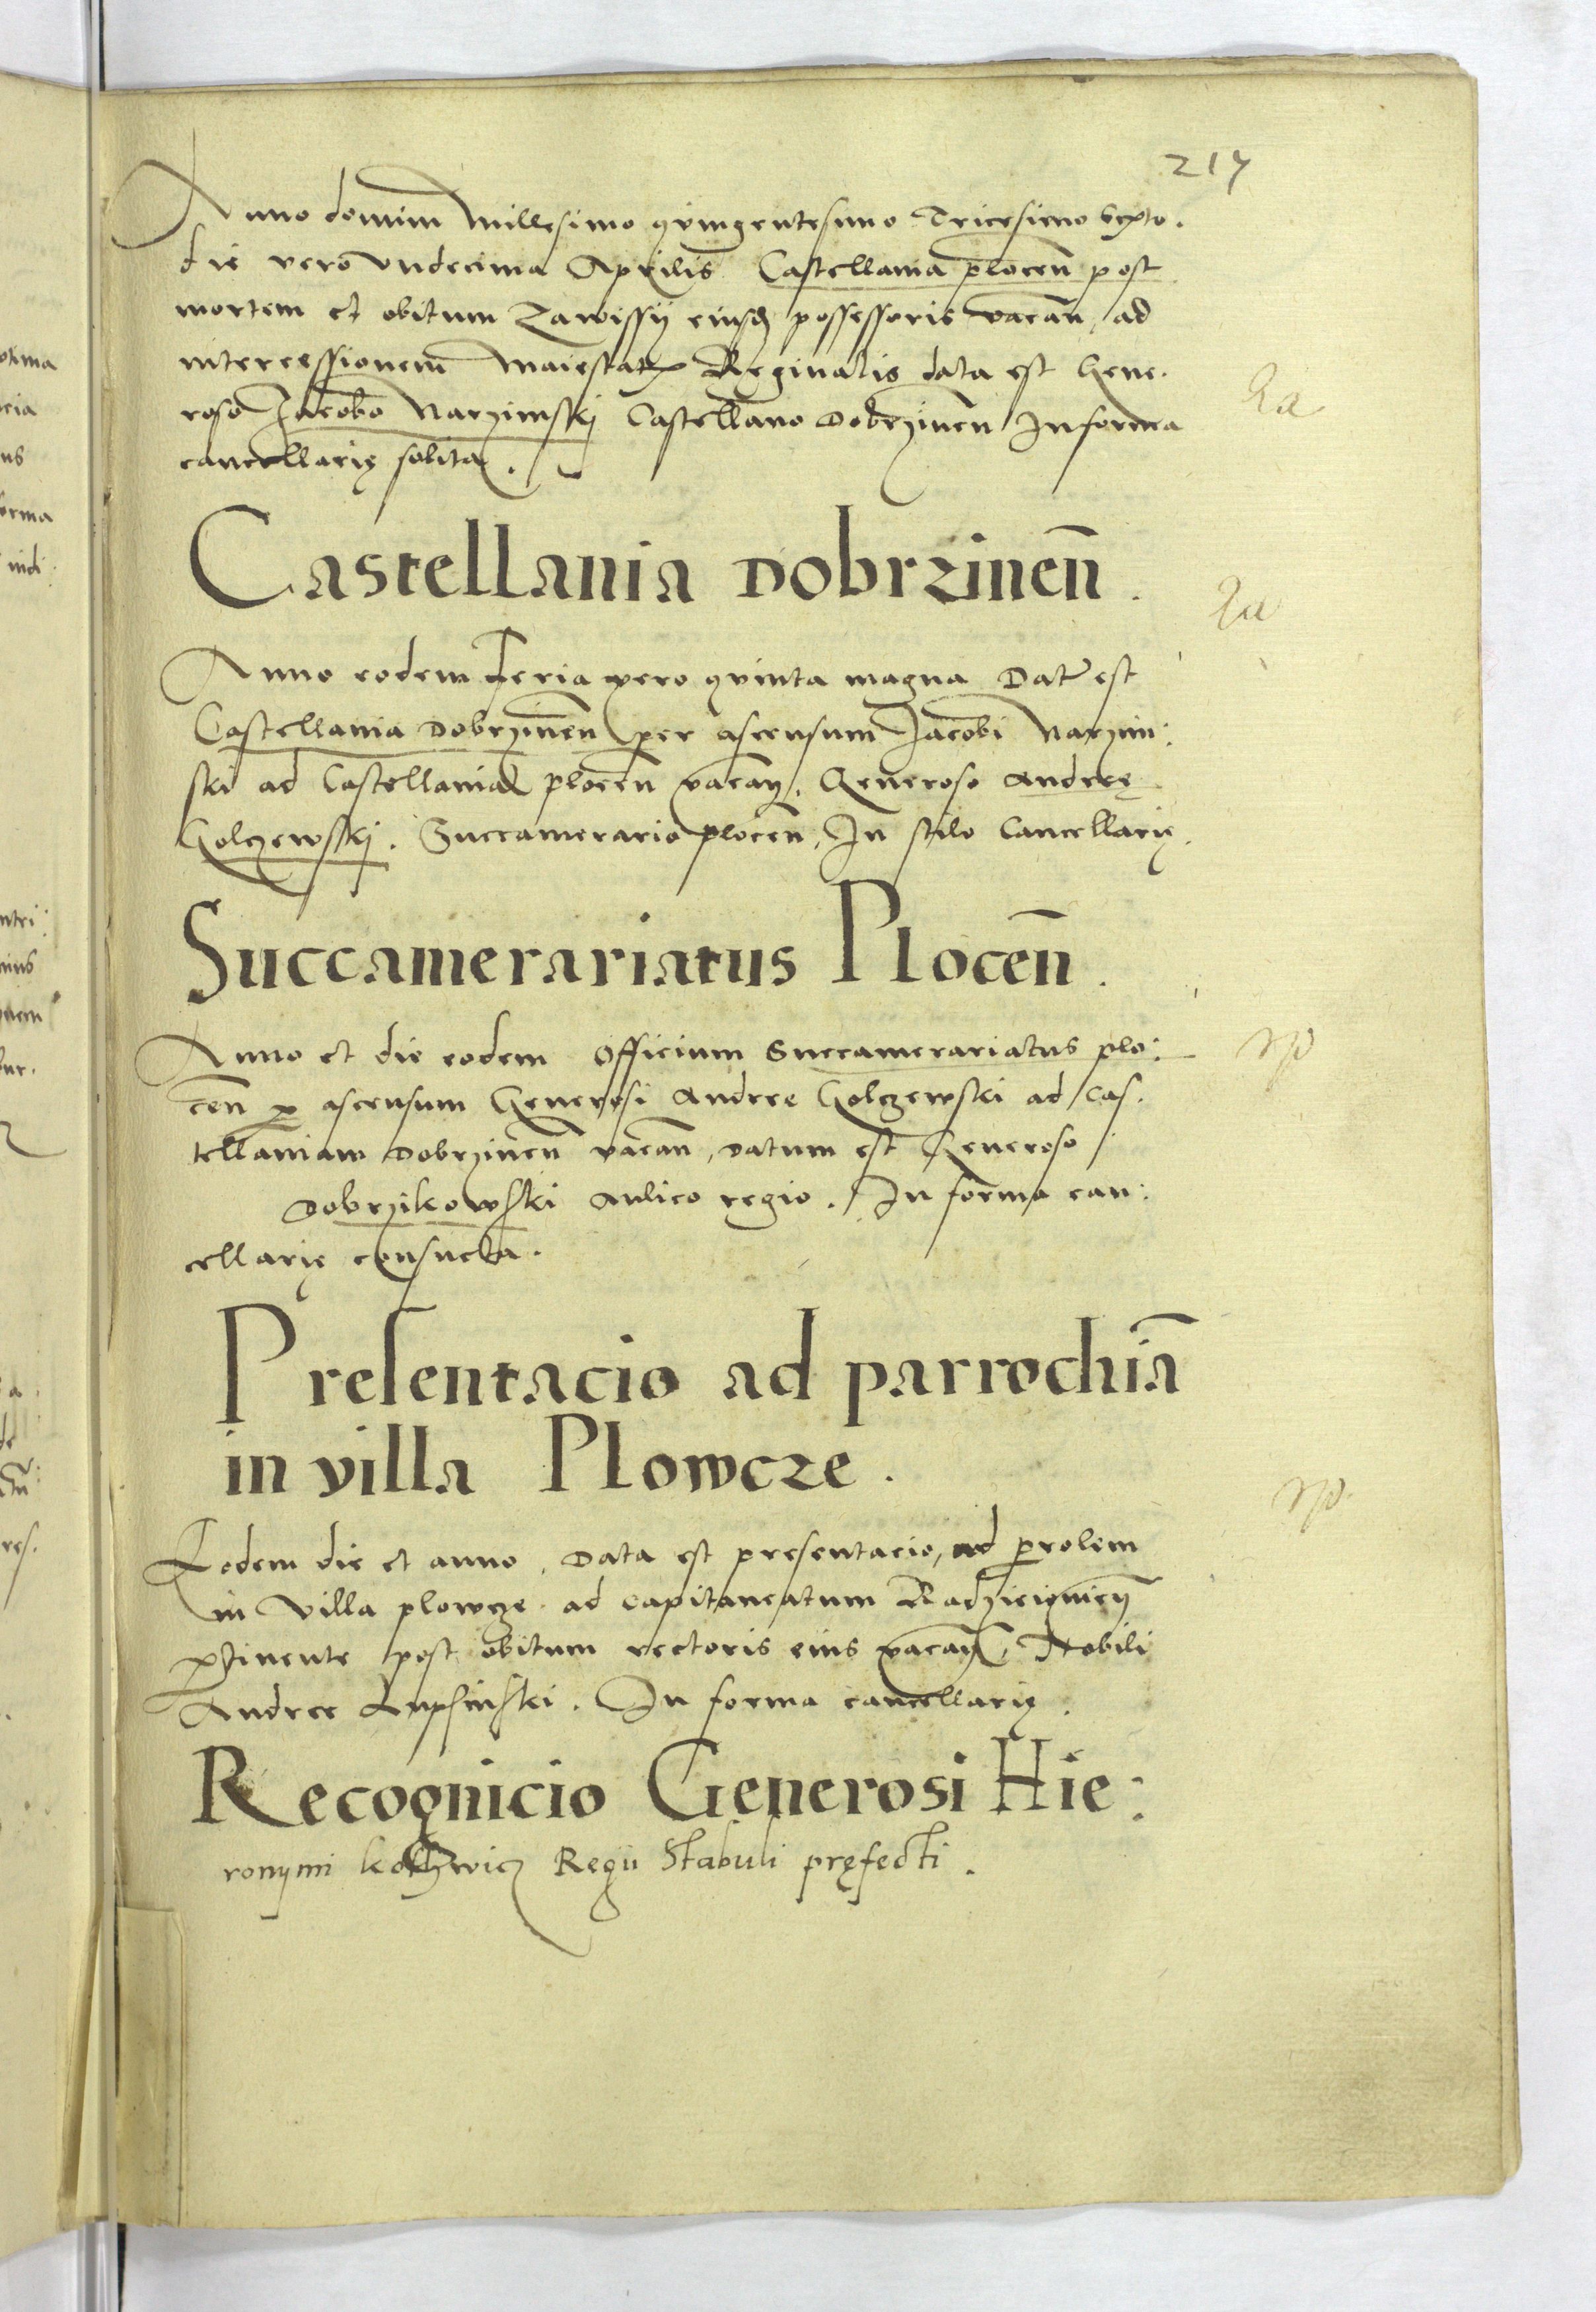 217
Anno domini Millesimo quingentesimo Tricesimo Sexto.
die vero vndecima Aprilis Castellania plocen̄ post
mortem et obitum Zawissÿ eiusd possessoris vacan̄, ad
intercessionem Maiestatꝭ Reginalis data est Gene.
roso Jacobo Narzimskij Castellano Dobrzinen̄ In forma
cancellarię solita.
Castellania Dobrzinen̄.
Anno eodem Feria vero quinta magna Data est
Castellania Dobrzinen̄ per ascensum Jacobi Narzim:
ski ad Castellaniā plocen̄ vacan̄. Generoso Andreę
Golczewskij. Succamerario plocen̄, In stilo Cancellarię.
Succamerariatus Plocen̄.
Anno et die eodem Officium Succamerariatus plo:
cen̄ ꝑ ascensum Generosi Andree Golczewski ad Cas.
tellaniam Dobrzinen̄ vacan̄, Datum est Generoso
Dobrzikowski Aulico regio. In forma can:
cellarię consueta.
Presentacio ad parrochiā
in villa Plowcze.
Eodem die et anno, Data est presentacio, ad
in villa plowcze ad capitaneatum
ꝑtinente post obitum rectoris eius vacan̄, Nobili
Andree In forma cancellarię.
Recognicio Generosi Hie:
ronymi Regii Stabuli pręfecti.